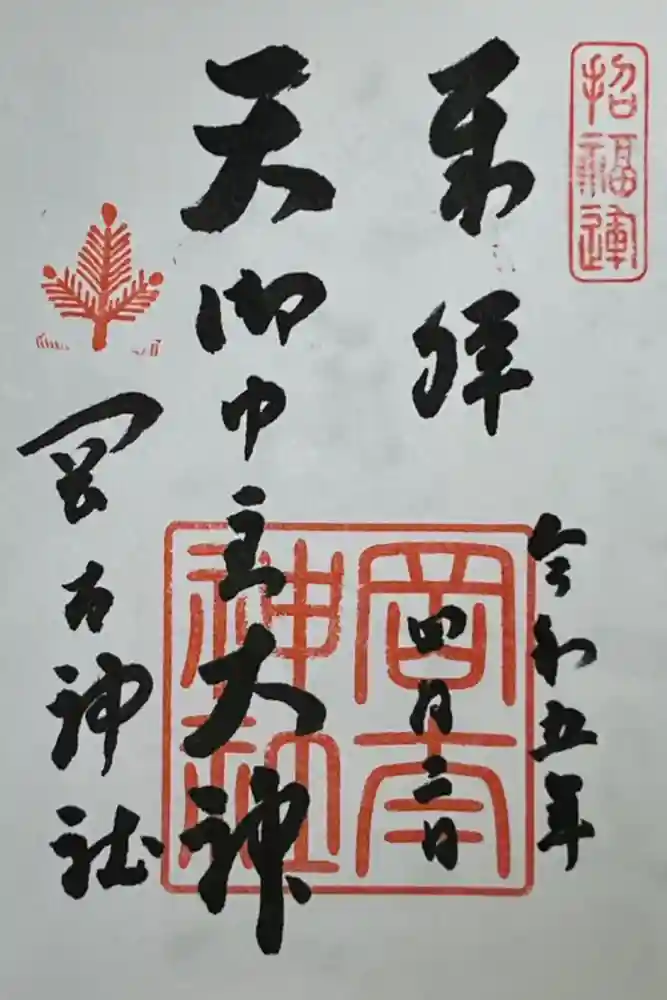 招福運
来拝
令和五年
四月二日
天御中主大神
岡太神社
岡太神社